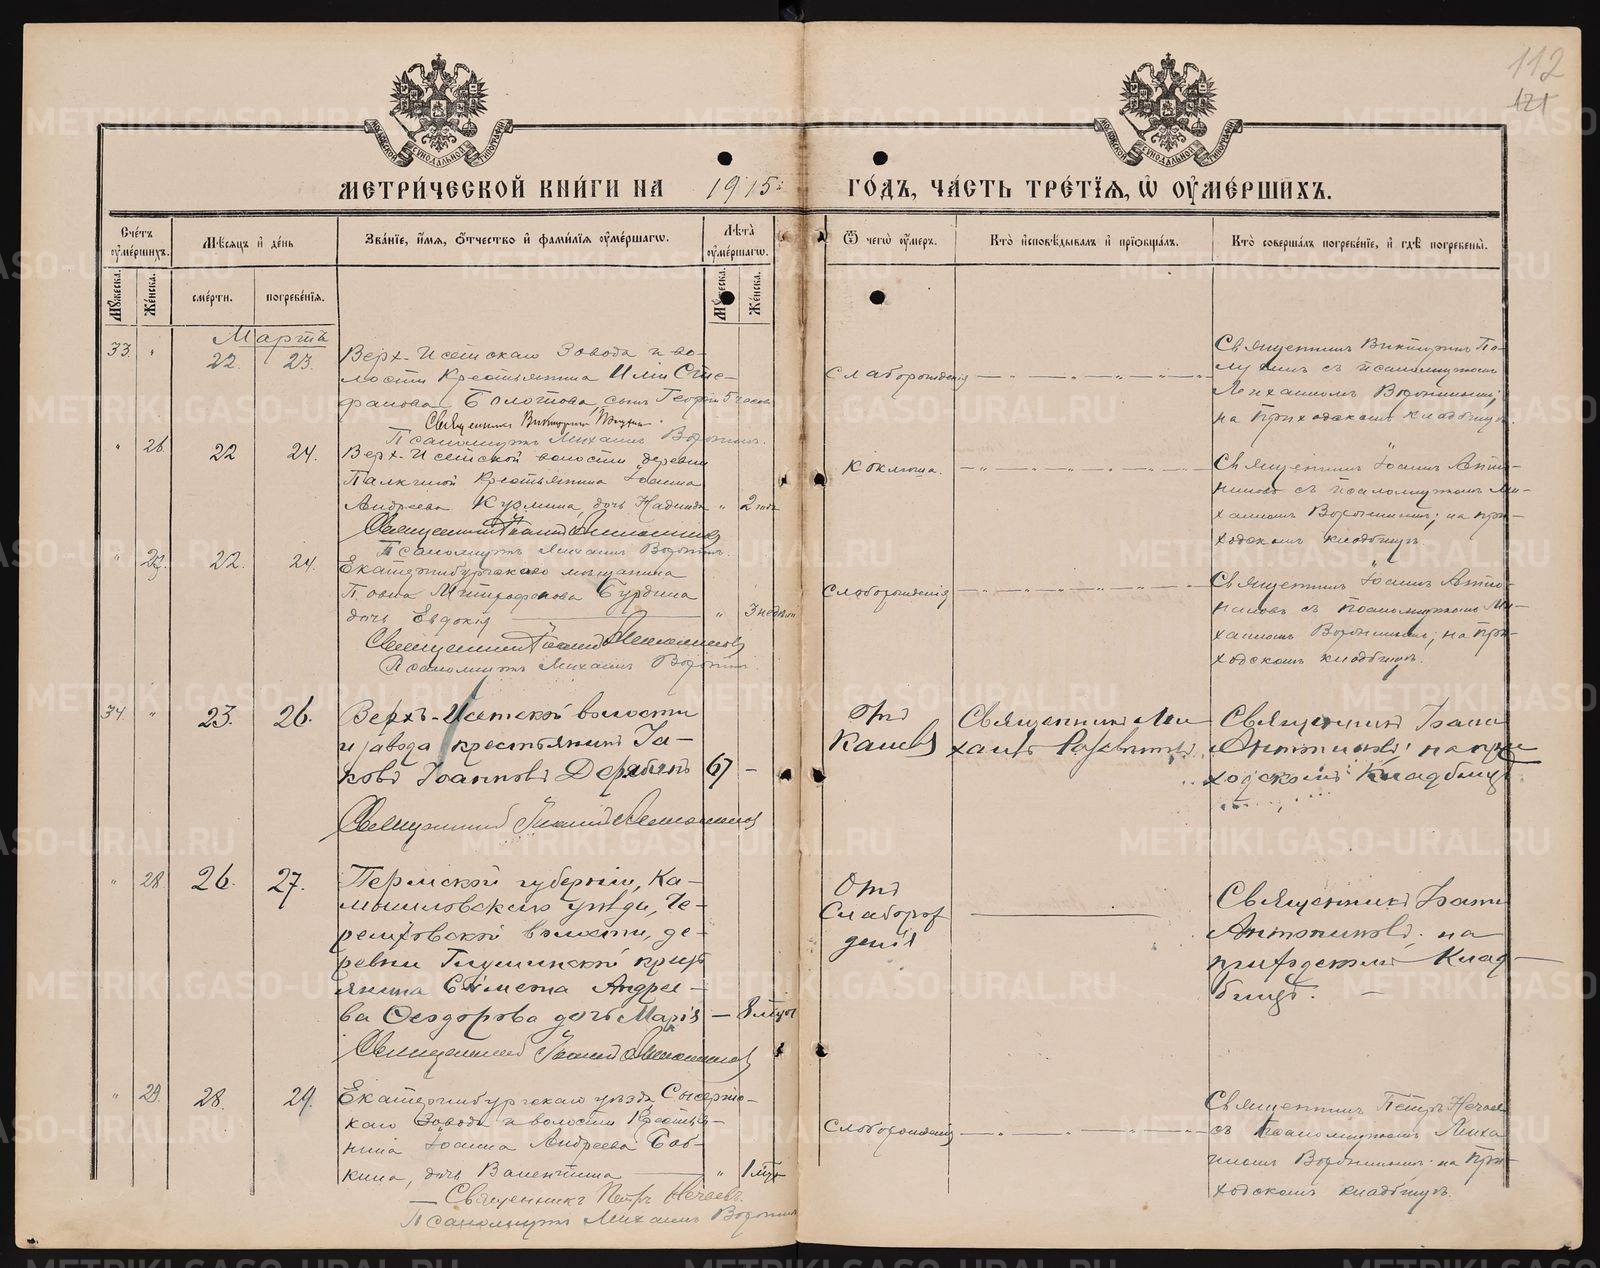 112
121
МЕТРИ́ЧЕСКОЙ КНИ́ГИ НА 1915 ГО́ДЪ, ЧА́СТЬ ТРЕ́ТЇЯ, Ѡ ОУ҆МЕ́РШИХЪ.
Сче́тъ оумершихъ.
Мѣ́сяцъ и҆ де́нь
Зва́нїе, и҆́мя, ѻ҆́тчество и҆ фами́лїя оумершагѡ.
Лѣта̀ оумершагѡ.
Ѿ чегѡ̀ оу҆́меръ.
Кто̀ и҆сповѣ́дывалъ и҆ прїѡбща́лъ.
Кто̀ соверша́лъ погребе́нїе, и҆ гдѣ̀ погребены̀.
Мꙋжеска.
Же́нска.
сме́рти.
погребе́нїя.
Мꙋжеска.
Же́нска.
Мартъ
33. " 22. 23.
Верх-Исетскаго Завода и во-
лости Крестьянина Иліи Сте-
фанова Болотова, сынъ Георгій 5 часовъ
Священникъ Викторинъ
Псаломщикъ Михаилъ Воронинъ.
Слаборожденія
Священникъ Викторинъ По-
съ псаломщикомъ
Михаиломъ Ворониным;
на Приходскомъ кладбищѣ.
" 26. 22 24.
Верх-Исетской волости деревни
Палкиной Крестьянина Іоанна
Андреева Кузмина, дочь Надежда " 2 года
Священникъ Іоаннъ Антониновъ
Псаломщикъ Михаилъ Воронинъ.
Коклюша.
Священникъ Іоаннъ Анто-
ниновъ съ псаломщикомъ Ми-
хаиломъ Ворониным; на при-
ходскомъ кладбищѣ.
" 27. 22. 24.
Екатеринбургскаго мѣщанина
Павла Митрофанова Бурдина
дочь Евдокія " 3 недѣли
Священникъ Іоаннъ Антониновъ
Псаломщикъ Михаилъ Воронинъ.
Слаборожденія
Священникъ Іоаннъ Анто-
ниновъ съ псаломщикомъ Ми-
хаиломъ Ворониным; на При-
ходскомъ кладбищѣ.
34. " 23. 26.
Верхъ-Исетской волости
и завода крестьянинъ Іа-
ковъ Іоанновъ Дерябинъ 67 -
Священникъ Іоаннъ Антониновъ
Отъ
Кашля
Священникъ Ми-
хаилъ
Священникъ Іоаннъ
Антониновъ; на при-
ходскомъ Кладбищѣ
" 28. 26. 27.
Пермской губерніи, Ка-
мышловскаго уѣзда, Че-
ремховской волости, де-
ревни Глушинской крест
янина Симеона Андрее-
ва Ѳеодорова дочь Марія - 8 мѣсц
Священникъ Іоаннъ Антониновъ
Отъ
Слаборож
денія
Священникъ Іоаннъ
Антониновъ; на
приходском Клад-
бищѣ.
" 29. 28. 29.
Екатеринбургскаго уѣзда, Сысертс-
каго Завода и волости Крестья-
нина Іоанна Андреева Баб-
кина, дочь Валентина " 1 мѣс
Священникъ Петръ Нечаевъ
Псаломщикъ Михаилъ Воронинъ
Слаборожденія
Священникъ Петръ Нечаев
съ псаломщикомъ Миха
иломъ Ворониным; на При-
ходскомъ кладбищѣ.
METRIKI.GASO-URAL.RU